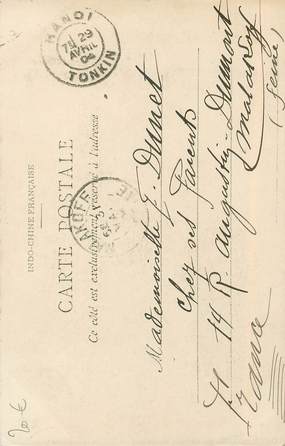 INDO-CHINE FRANÇAISE
CARTE POSTALE
Ce côté est exclusivement réservé à l'adresse
HANOI
29
AVRIL
04
TONKIN
Mademoiselle J. Dumet
Chez ses Parents
14 R. Augustin-Dumont
Malakoff
(Seine)
France
20 €